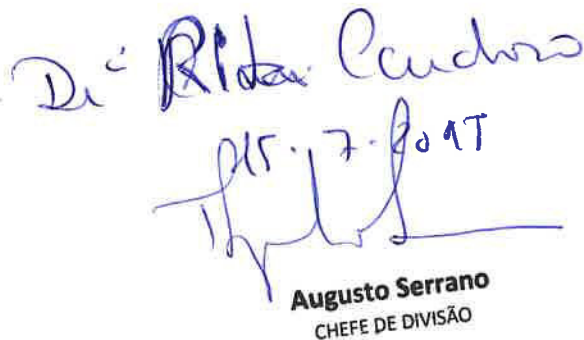 Drª Rita Cardoso
15.7.2015
Augusto Serrano
CHEFE DE DIVISÃO